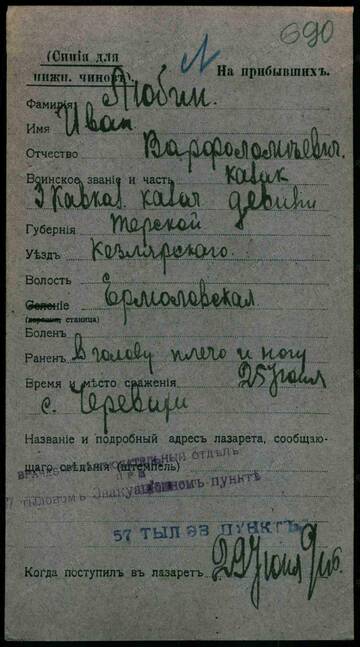 690
(Синія для
нижн. чиновъ).
На прибывшихъ.
Фамилія Любин.
Имя Иван
Отчество Варфоломеевич.
Воинское званіе и часть казак
3 Кавказ. кавал дивизи
Губернія Терской
Уѣздъ Кизлярского.
Волость
Селеніе Ермоловская
(деревня, станица)
Боленъ
Раненъ в голову плечо и ногу
Время и мѣсто сраженія 25 Июля
с. Черевищи
Названіе и подробный адресъ лазарета, сообщаю-
щаго свѣдѣнія (штемпель)
ОТДѢЛЪ
ПРИ
57 тыловомъ Эвакуаціонномъ пунктѣ
57 ТЫЛ ЭВ ПУНКТЪ
Когда поступилъ въ лазаретъ 29 Июля 916.